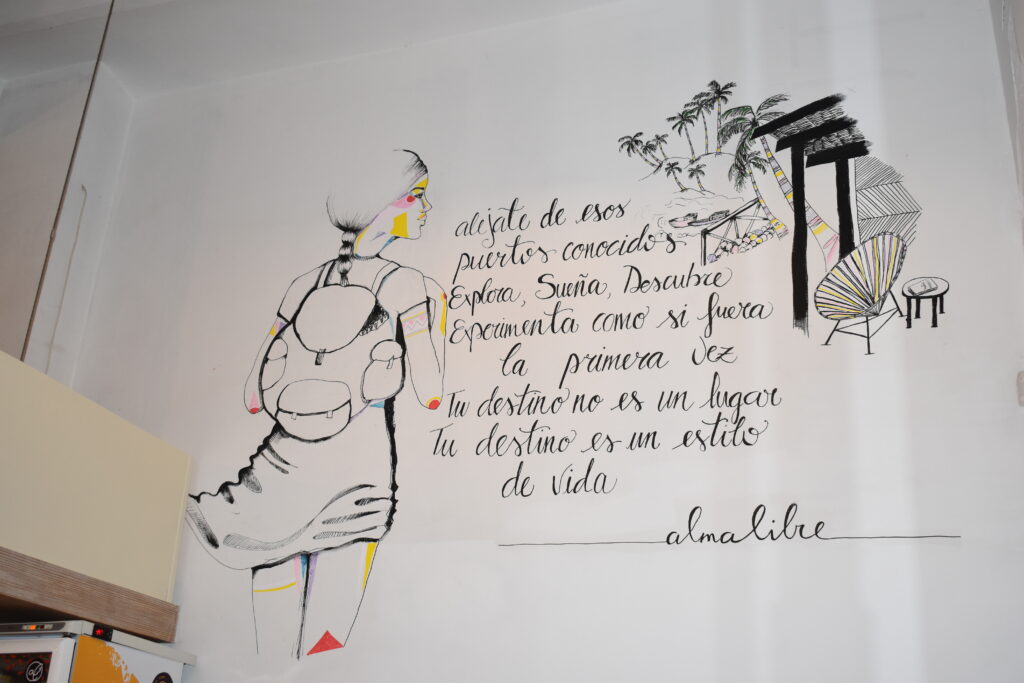 alejate de esos
puertos conocidos
Explora, Sueña, Descubre
Experimenta como si fuera
la primera vez
Tu destino no es un lugar
Tu destino es un estilo
de vida
alma libre